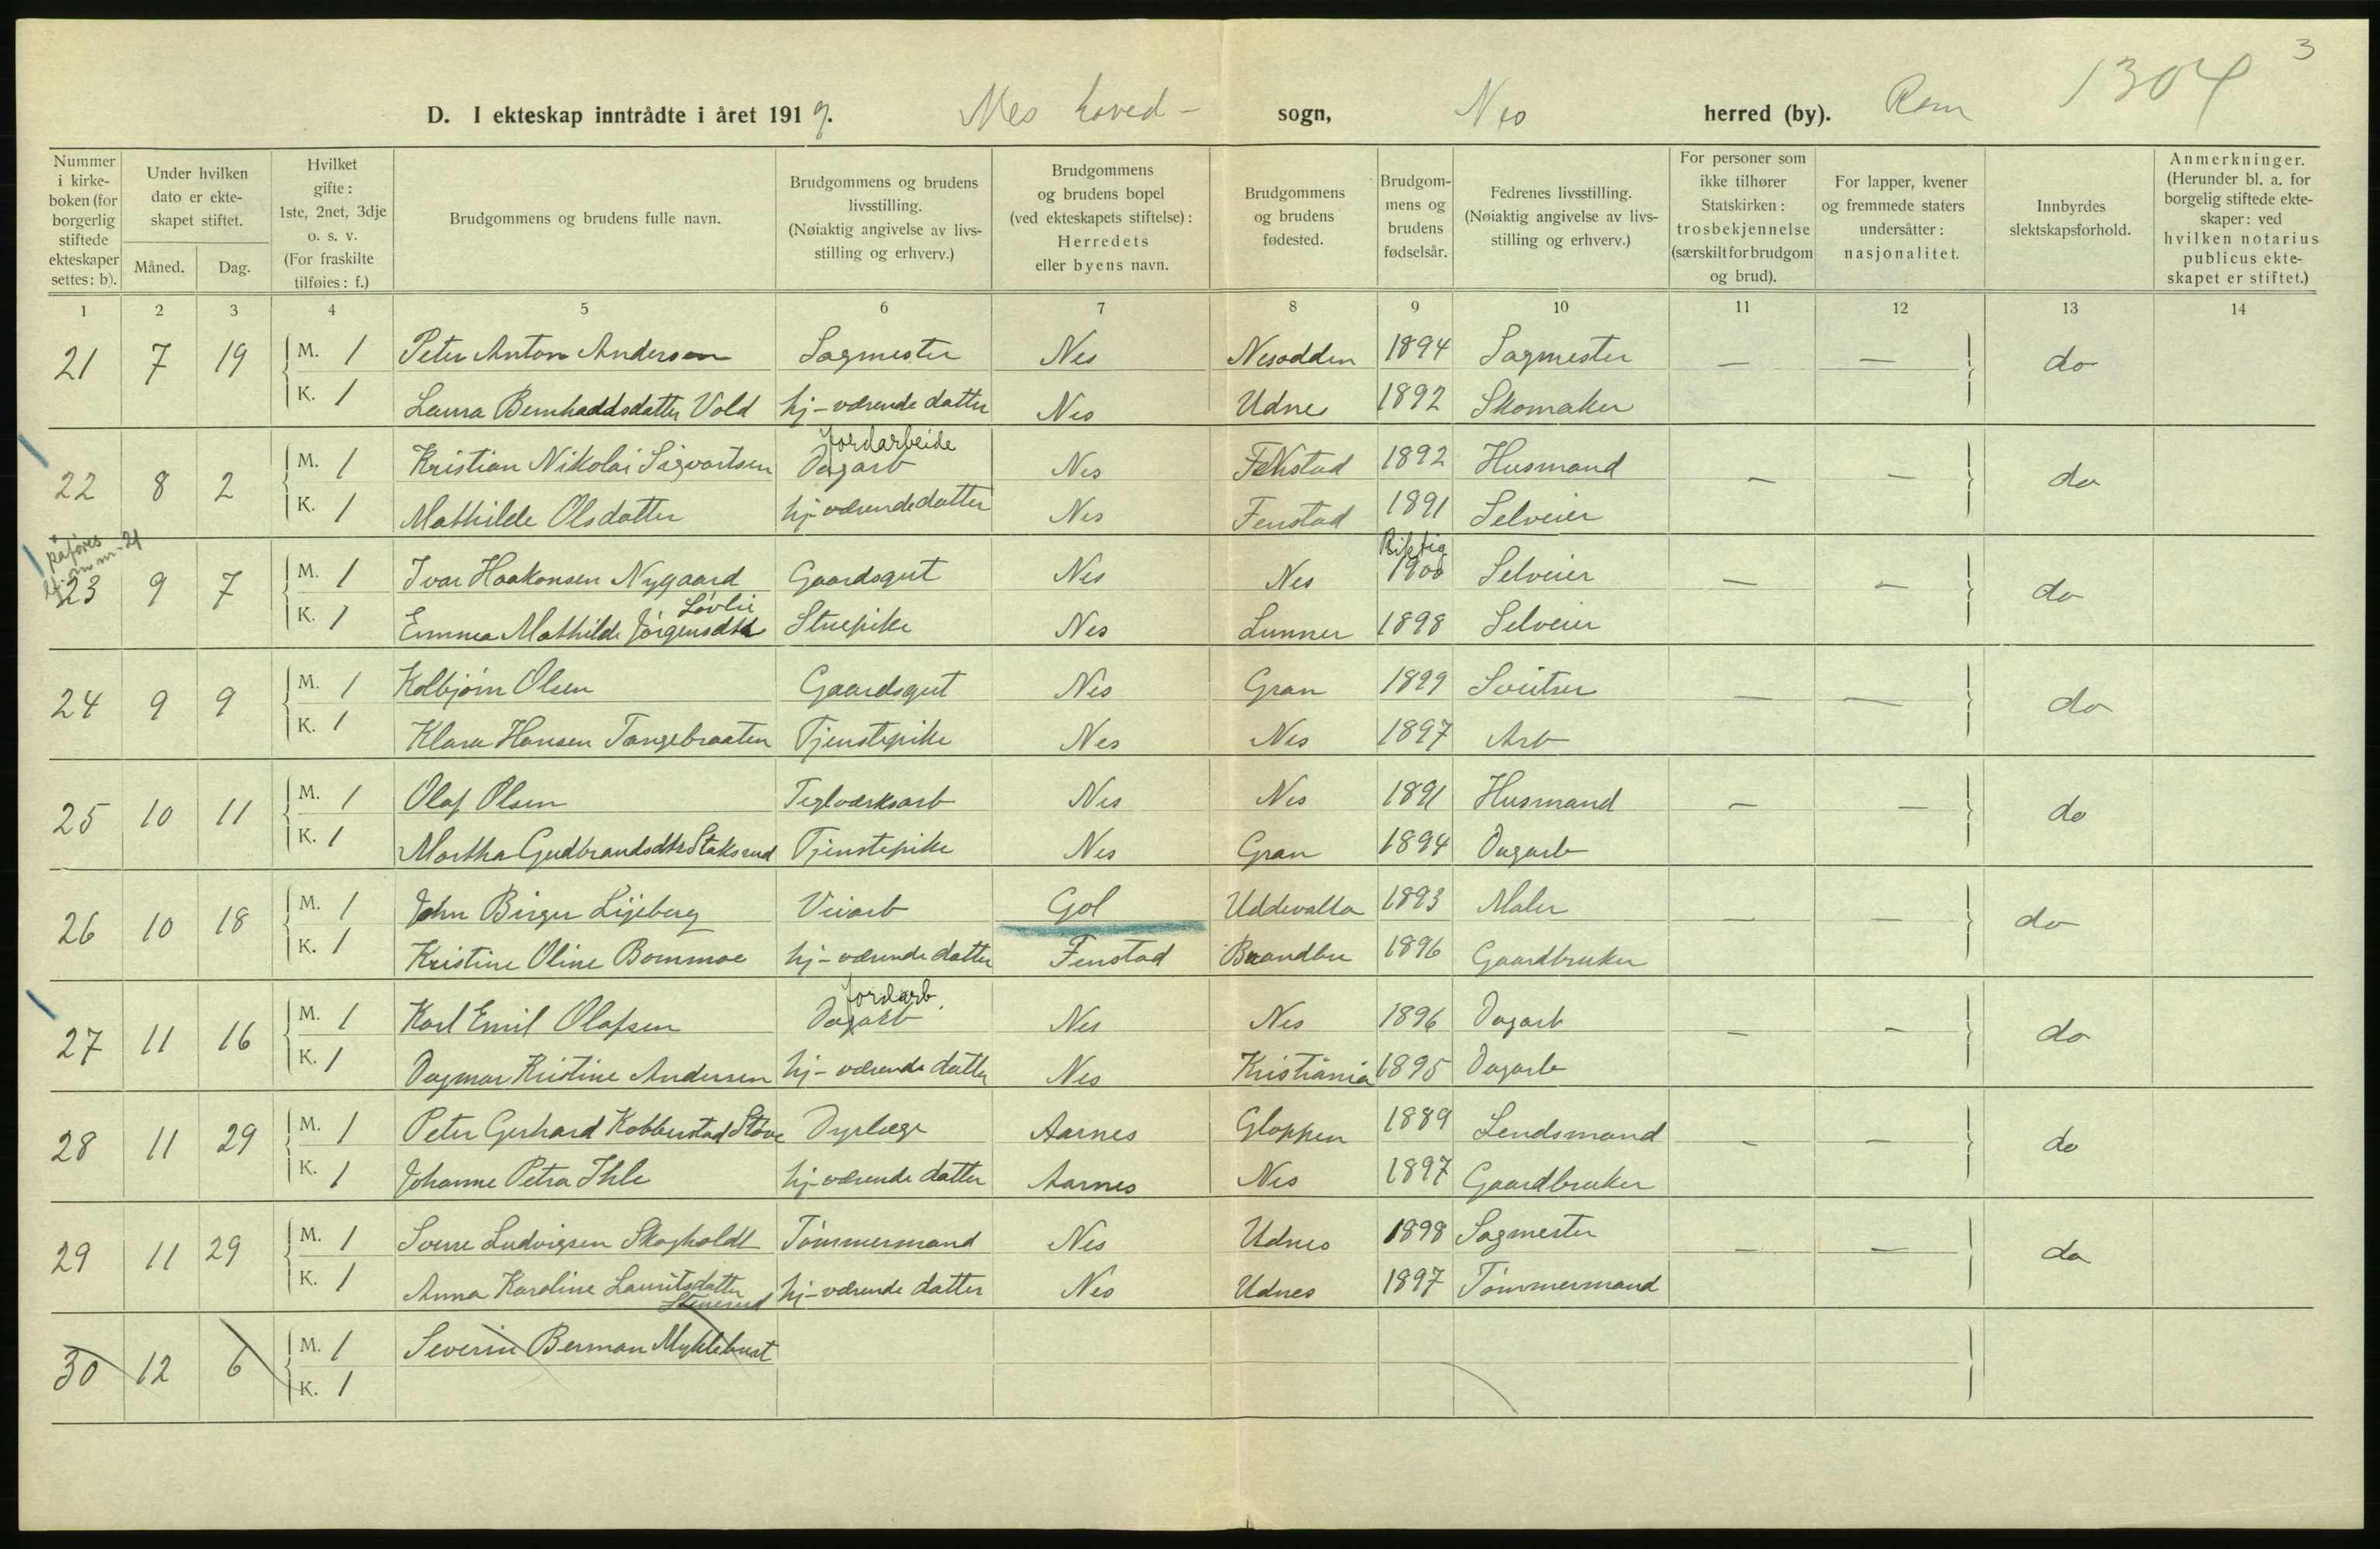 3
1304
D. I ekteskap inntrådte i året 1919. Nes hoved- sogn, Nes herred (by). Rom
Nummer i kirkeboken (for borgerlig stiftede ekteskaper settes: b).
Under hvilken dato er ekteskapet stiftet.
Måned. Dag.
Hvilket gifte: 1ste, 2net, 3dje o. s. v. (For fraskilte tilføies: f.)
Brudgommens og brudens fulle navn.
Brudgommens og brudens livsstilling. (Nøiaktig angivelse av livsstilling og erhverv.)
Brudgommens og brudens bopel (ved ekteskapets stiftelse): Herredets eller byens navn.
Brudgommens og brudens fødested.
Brudgommens og brudens fødselsår.
Fedrenes livsstilling. (Nøiaktig angivelse av livsstilling og erhverv.)
For personer som ikke tilhører Statskirken: trosbekjennelse (særskilt for brudgom og brud).
For lapper, kvener og fremmede staters undersåtter: nasjonalitet.
Innbyrdes slektskapsforhold.
Anmerkninger. (Herunder bl. a. for borgelig stiftede ekteskaper: ved hvilken notarius publicus ekteskapet er stiftet.)
1 2 3 4 5 6 7 8 9 10 11 12 13 14
21 7 19 M. 1 Peter Anton Anderson Sagmester Nes Nesodden 1894 Sagmester — — do
K. 1 Laura Bernhaddsdatter Vold hj-værende datter Nes Udnes 1892 Skomaker
Jordarbeide
22 8 2 M. 1 Kristian Nikolai Sigvartsen Dagarb Nes Fenstad 1892 Husmand — — do
K. 1 Mathilde Olsdatter hj-værende datter Nes Fenstad 1891 Selveier
påføres
Riktig
23 9 7 M. 1 Ivar Haakonsen Nygaard Gaardsgut Nes Nes 1900 Selveier — — do
Løvlie
K. 1 Emma Mathilde Jörgensdtr Stuepike Nes Lunner 1898 Selveier
24 9 9 M. 1 Kolbjørn Olsen Gaardsgut Nes Gran 1899 Sveitser — — do
K. 1 Klara Hansen Tangebraaten Tjenstepike Nes Nes 1897 Arb
25 10 11 M. 1 Olaf Olsen Teglværksarb Nes Nes 1891 Husmand — — do
K. 1 Martha Gudbrandsdtr Staksrud Tjenstepike Nes Gran 1894 Dagarb
26 10 18 M. 1 John Birger Lijeberg Veiarb Gol Uddevalla 1893 Maler — — do
K. 1 Kristine Oline Bommoe hj-værende datter Fenstad Brandbu 1896 Gaardbruker
Jordarb.
27 11 16 M. 1 Karl Emil Olafsen Dagarb Nes Nes 1896 Dagarb — — do
K. 1 Dagmar Kristine Andersen hj-værende datter Nes Kristiania 1895 Dagarb
28 11 29 M. 1 Peter Gerhard Kobberstad Støve Dyrlæge Aarnes Gloppen 1889 Lendsmand — — do
K. 1 Johanne Petra Ihle hj-værende datter Aarnes Nes 1897 Gaardbruker
29 11 29 M. 1 Sverre Ludvigsen Skogholdt Tømmermand Nes Udnes 1898 Sagmester — — do
K. 1 Anna Karoline Lauritsdatter hj-værende datter Nes Udnes 1897 Tømmermand
Stenerud
30 12 6 M. 1 Severin Berman Myklebust
K. 1